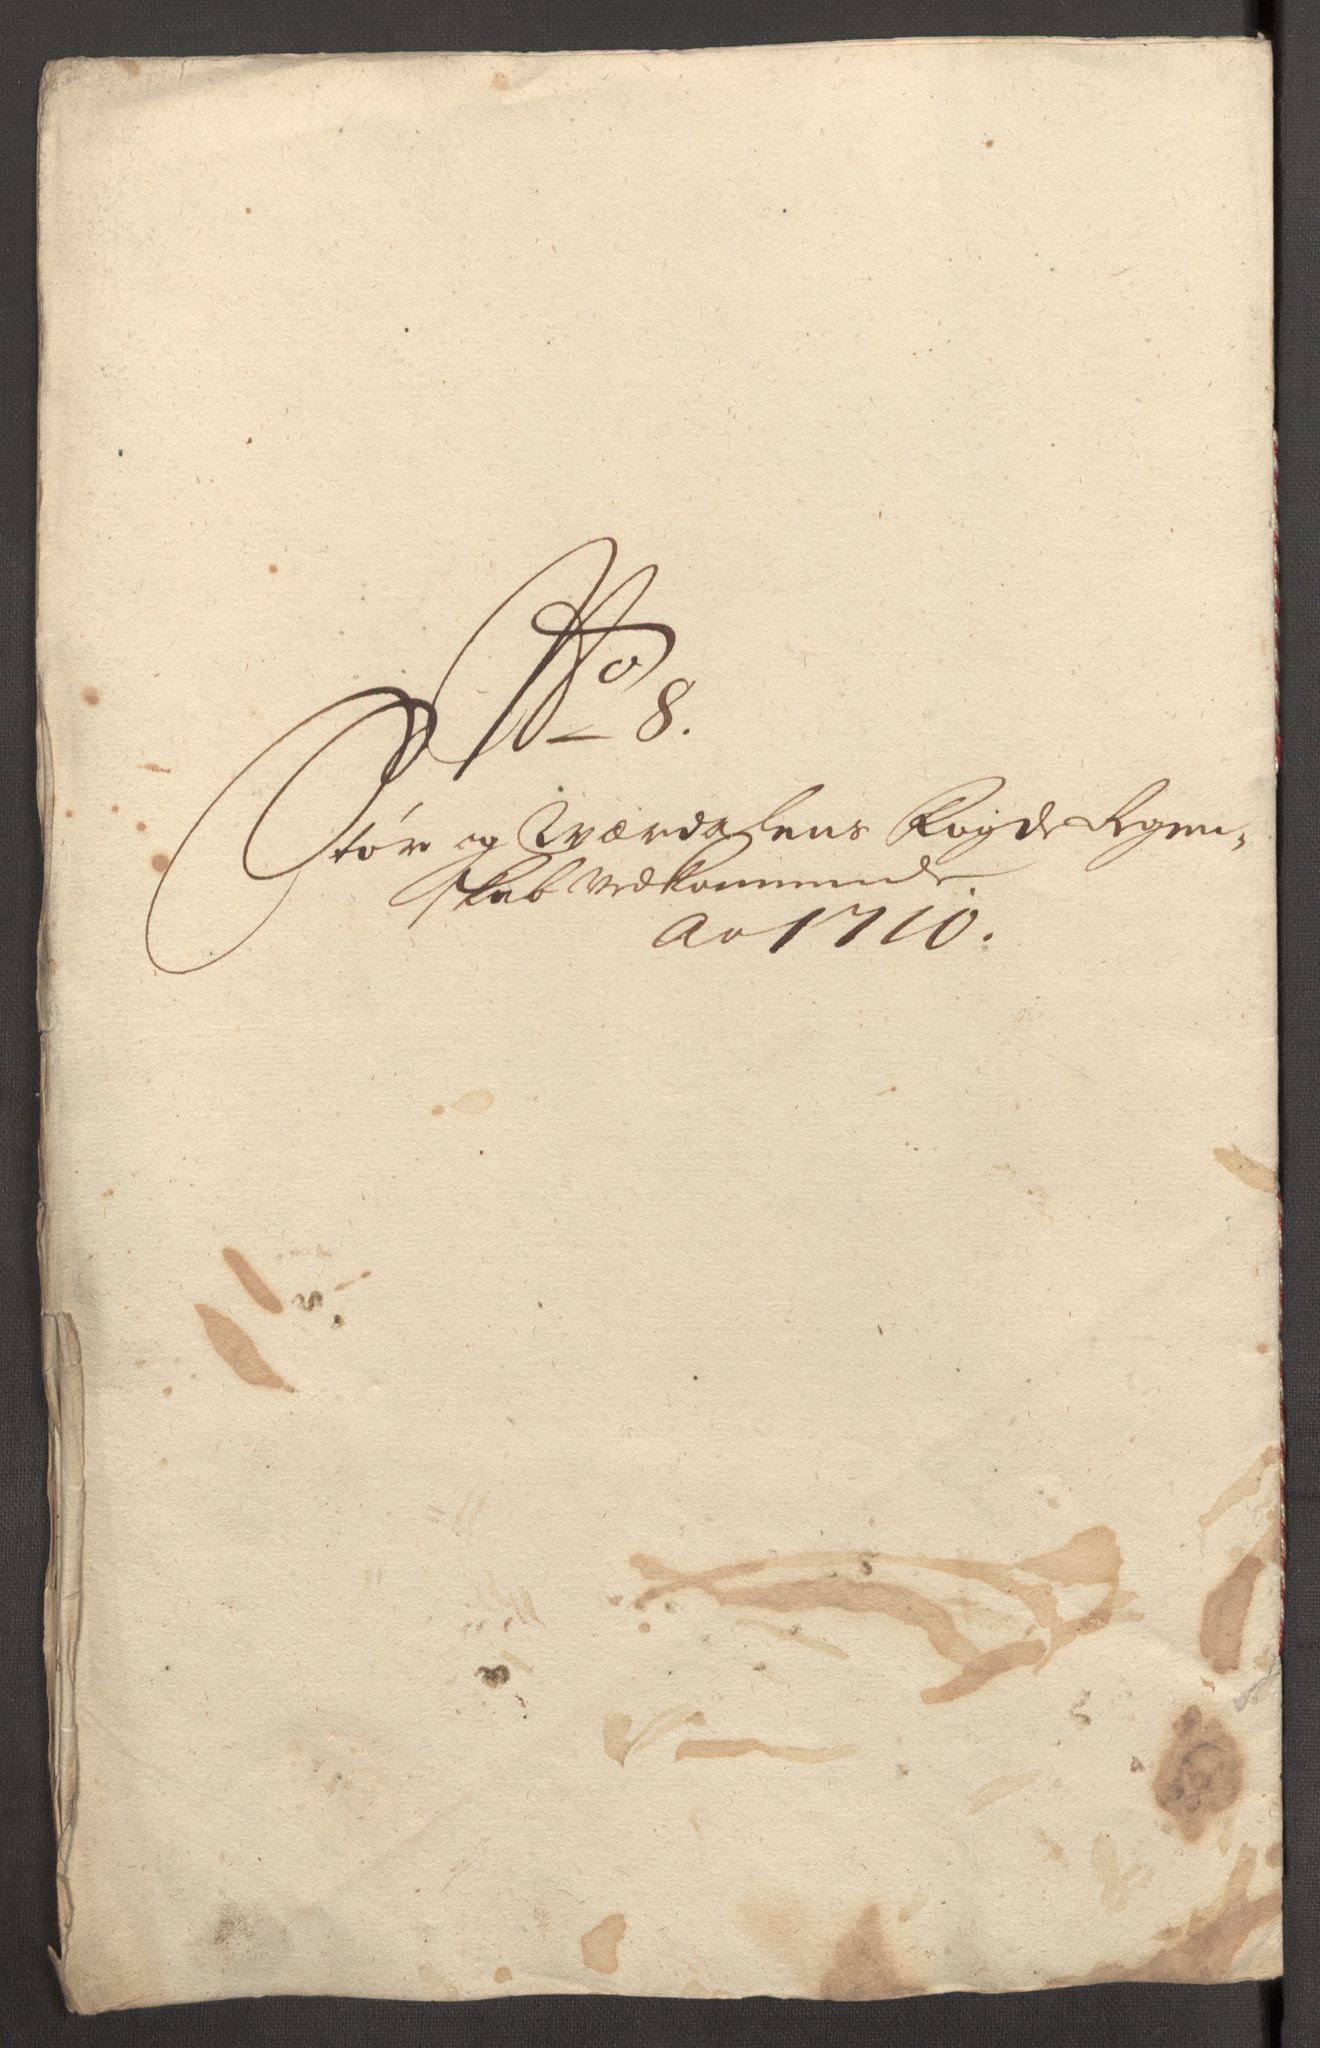 No 8.
Stør og Wærdahlens Fogderegen-
skab vedkommende.
Ao 1710.